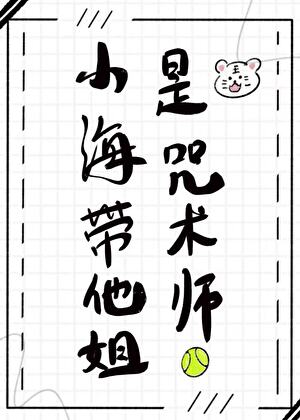 小海带他姐
是咒术师